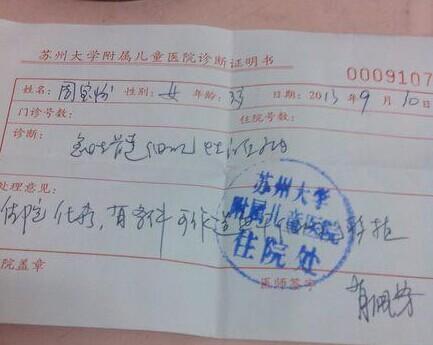 苏州大学附属儿童医院诊断证明书
0009107
姓名: 周宝怡 性别: 女 年龄: 日期: 2013 年 9 月 10 日
门诊号数: 住院号数:
诊断:
处理意见:
住院化疗,有条件可作造血干细胞移植
苏州大学
附属儿童医院
住院处
院盖章 医师签字